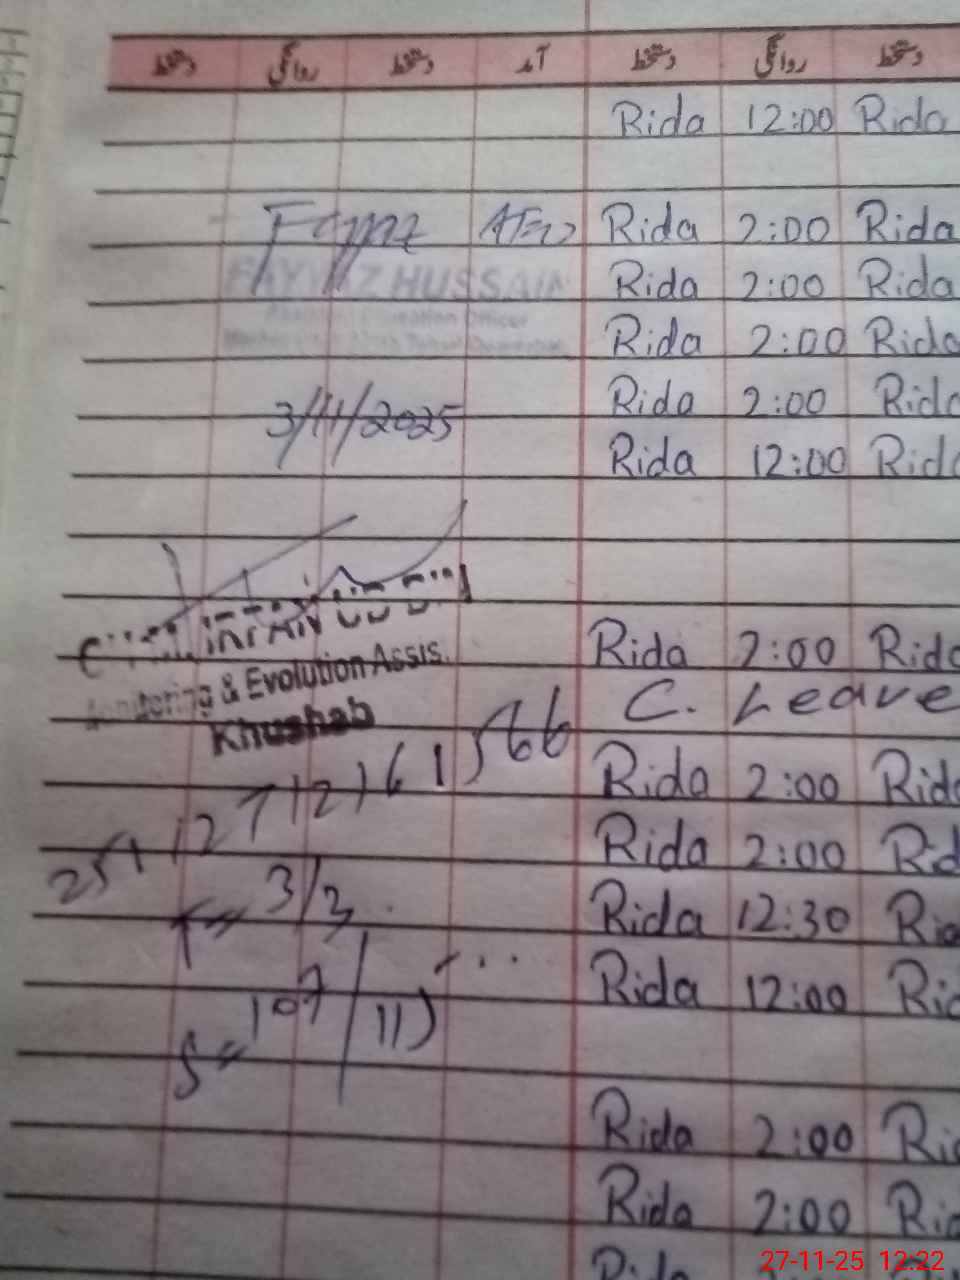 دستخط روانگی دستخط آمد دستخط روانگی دستخط
Rida 12:00 Rida
Rida 2:00 Rida
FAYYAZ HUSSAIN Rida 2:00 Rida
Officer Rida 2:00 Rida
3/11/2025 Rida 2:00 Rida
Rida 12:00 Rida
Rida 2:00 Rida
& Evolution Assis.
Khushab
C. Leave
Rida 2:00 Rida
Rida 2:00 Rida
T = 3/3 Rida 12:30 Rida
Rida 12:00 Rida
S = 107/115
Rida 2:00 Ri
Rida 2:00 Rid
Rida
27-11-25 12:22